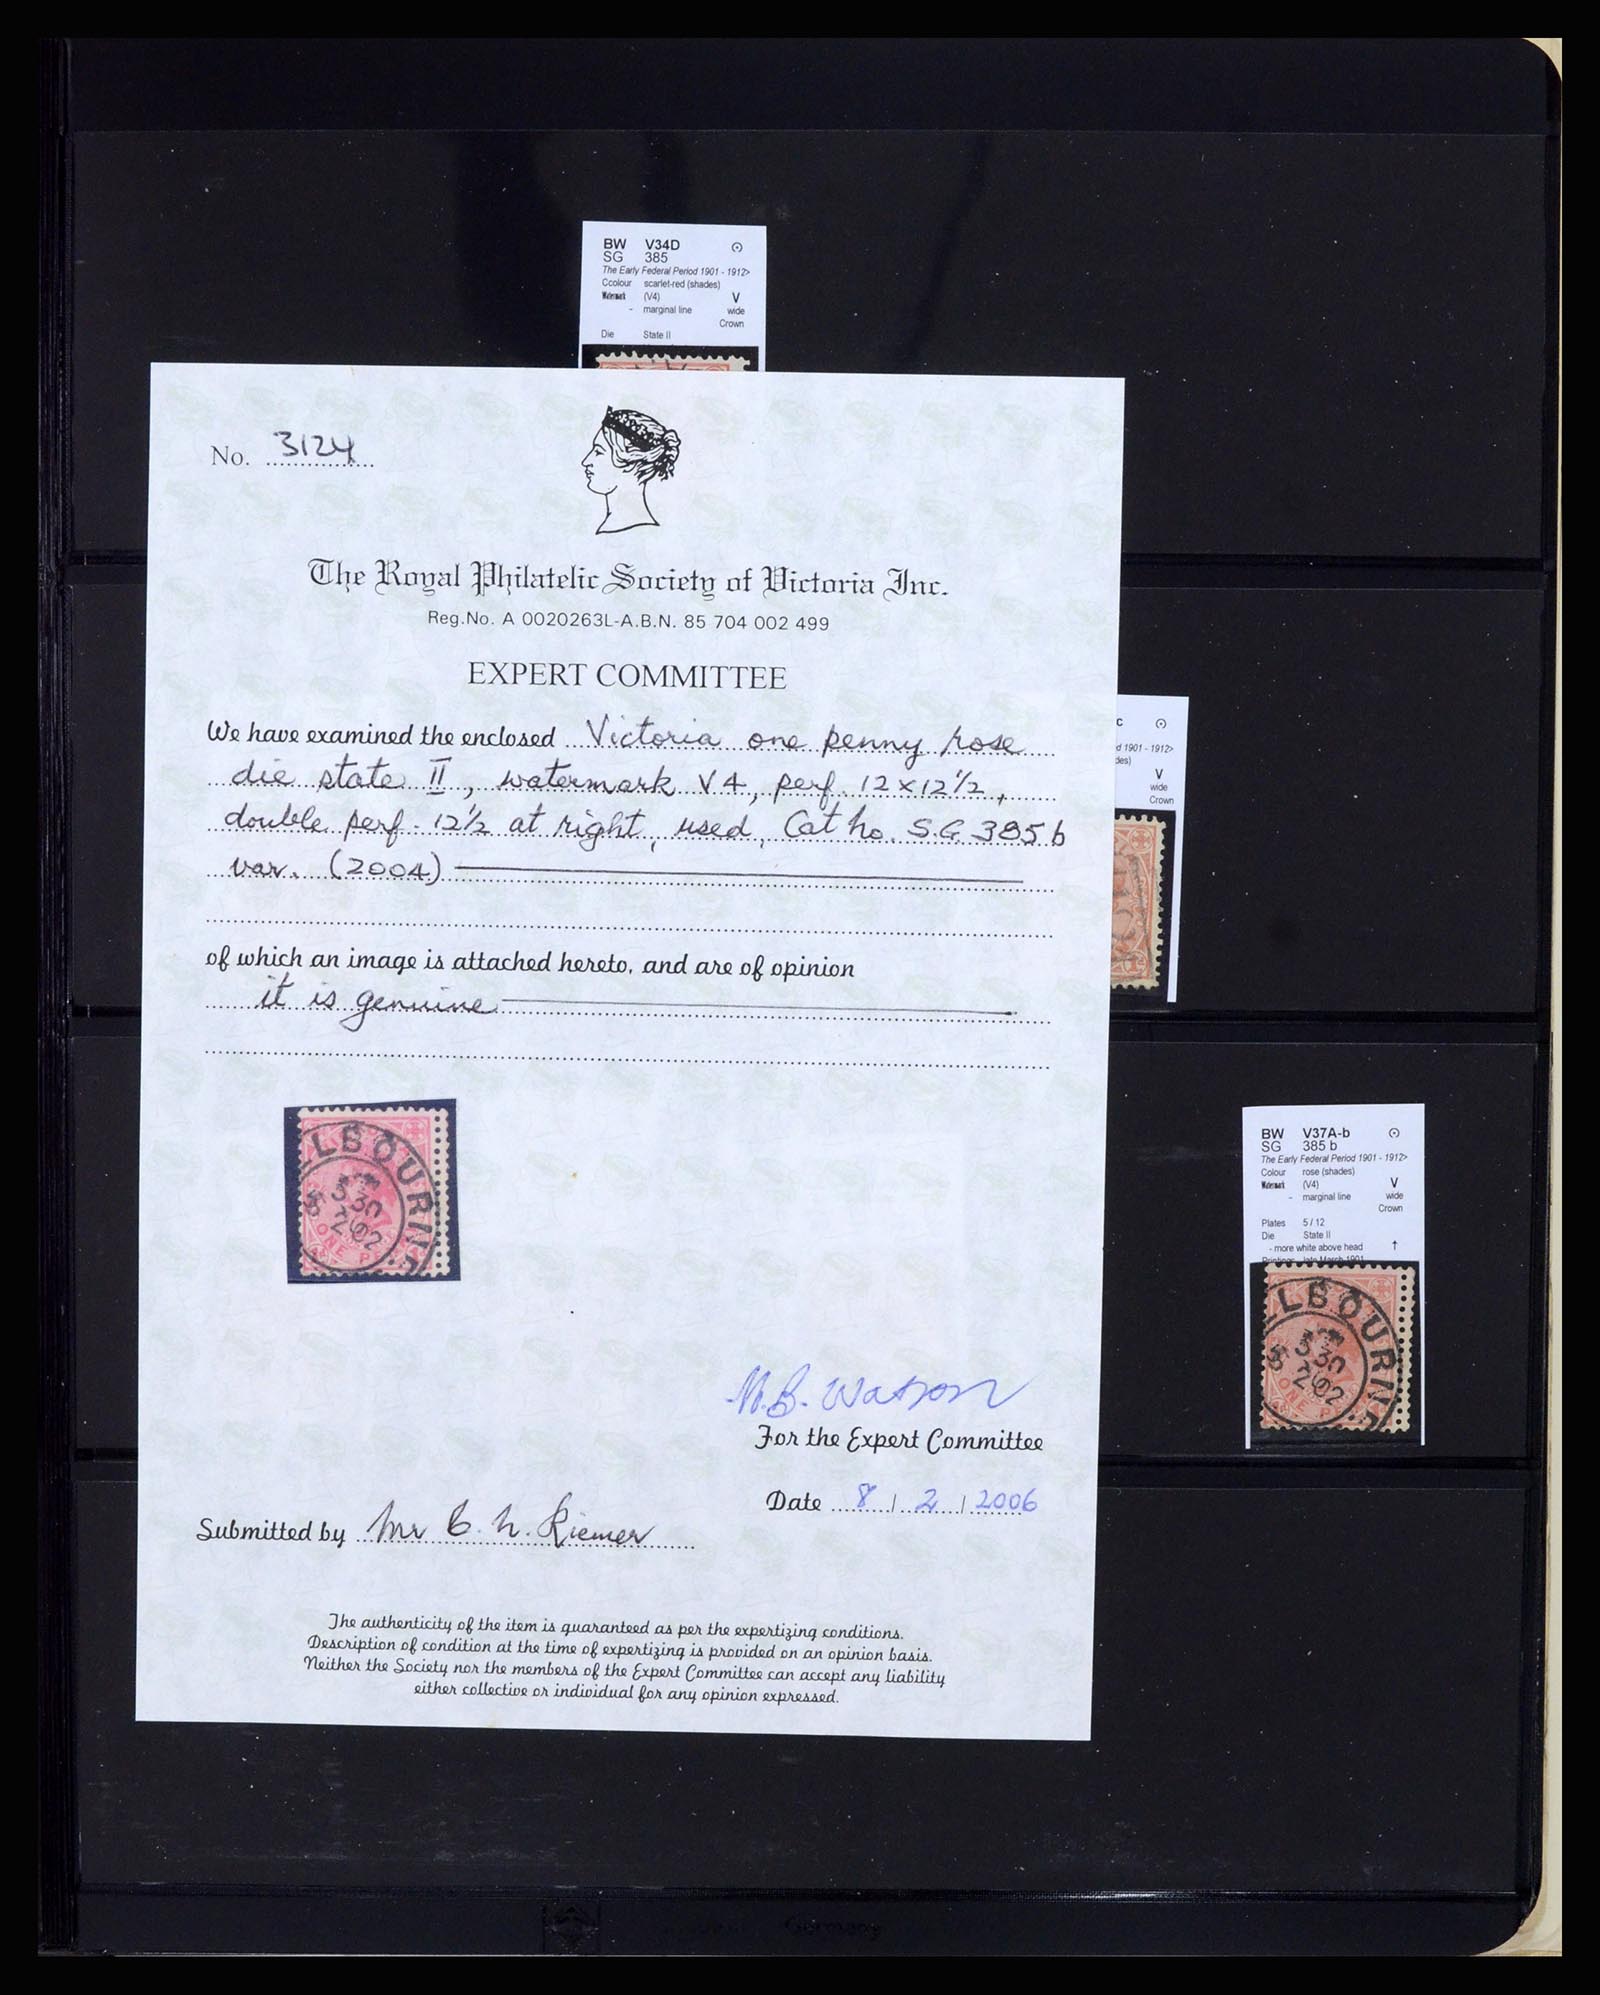 BW V34D
SG 385
The Early Federal Period 1901 - 1912>
Ccolour scarlet-red (shades)
Watermark (V4) V
- marginal line wide
Crown
Die State II
No. 3124
The Royal Philatelic Society of Victoria Inc.
Reg.No. A 0020263L-A.B.N. 85 704 002 499
EXPERT COMMITTEE
We have examined the enclosed Victoria one penny rose
die state II, watermark V4, perf. 12x12½,
double perf. 12½ at right, used, Cat no. S.G. 385b
var. (2004)
of which an image is attached hereto, and are of opinion
it is genuine
LBOURNE
3 30
2 02
ONE PE
M.B. Watson
For the Expert Committee
Date 8 / 2 / 2006
Submitted by Mr C. N. Riemer
The authenticity of the item is guaranteed as per the expertizing conditions.
Description of condition at the time of expertizing is provided on an opinion basis.
Neither the Society nor the members of the Expert Committee can accept any liability
either collective or individual for any opinion expressed.
c
d 1901 - 1912>
des)
V
wide
Crown
BW V37A-b
SG 385 b
The Early Federal Period 1901 - 1912>
Colour rose (shades)
Watermark (V4) V
- marginal line wide
Crown
Plates 5 / 12
Die State II
- more white above head ↑
Printings late March 1901
LBOURNE
3 30
2 02
ONE PE
Germany